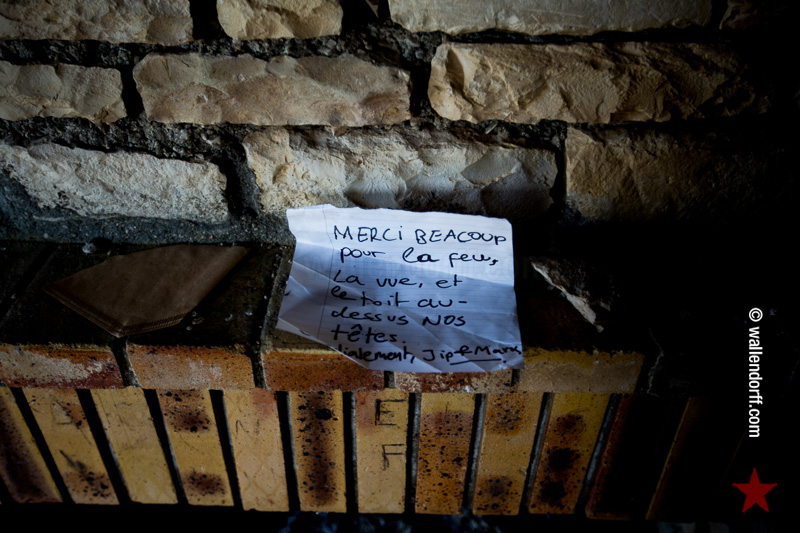 MERCi BEACOUP
pour la feu,
La vue, et
le toit au-
dessus NOS
têtes.
tialement, Jip & Mark
E
F
© wallendorff.com